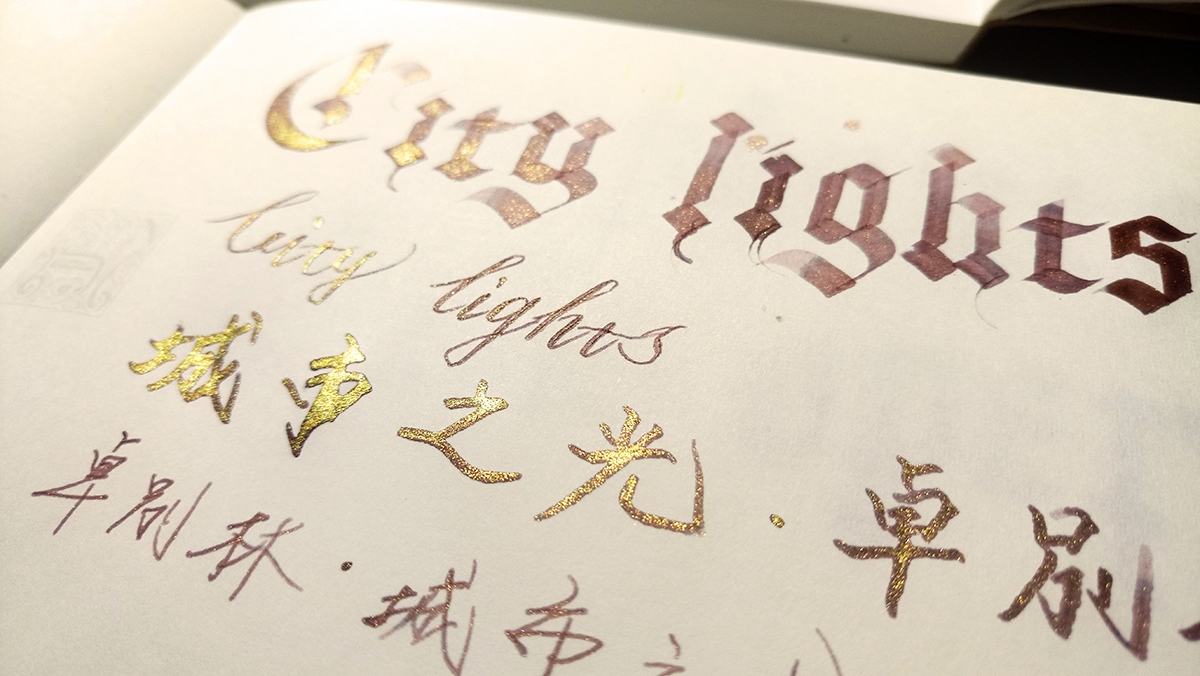 City lights
City lights
城市之光·卓别
卓别林·城市之